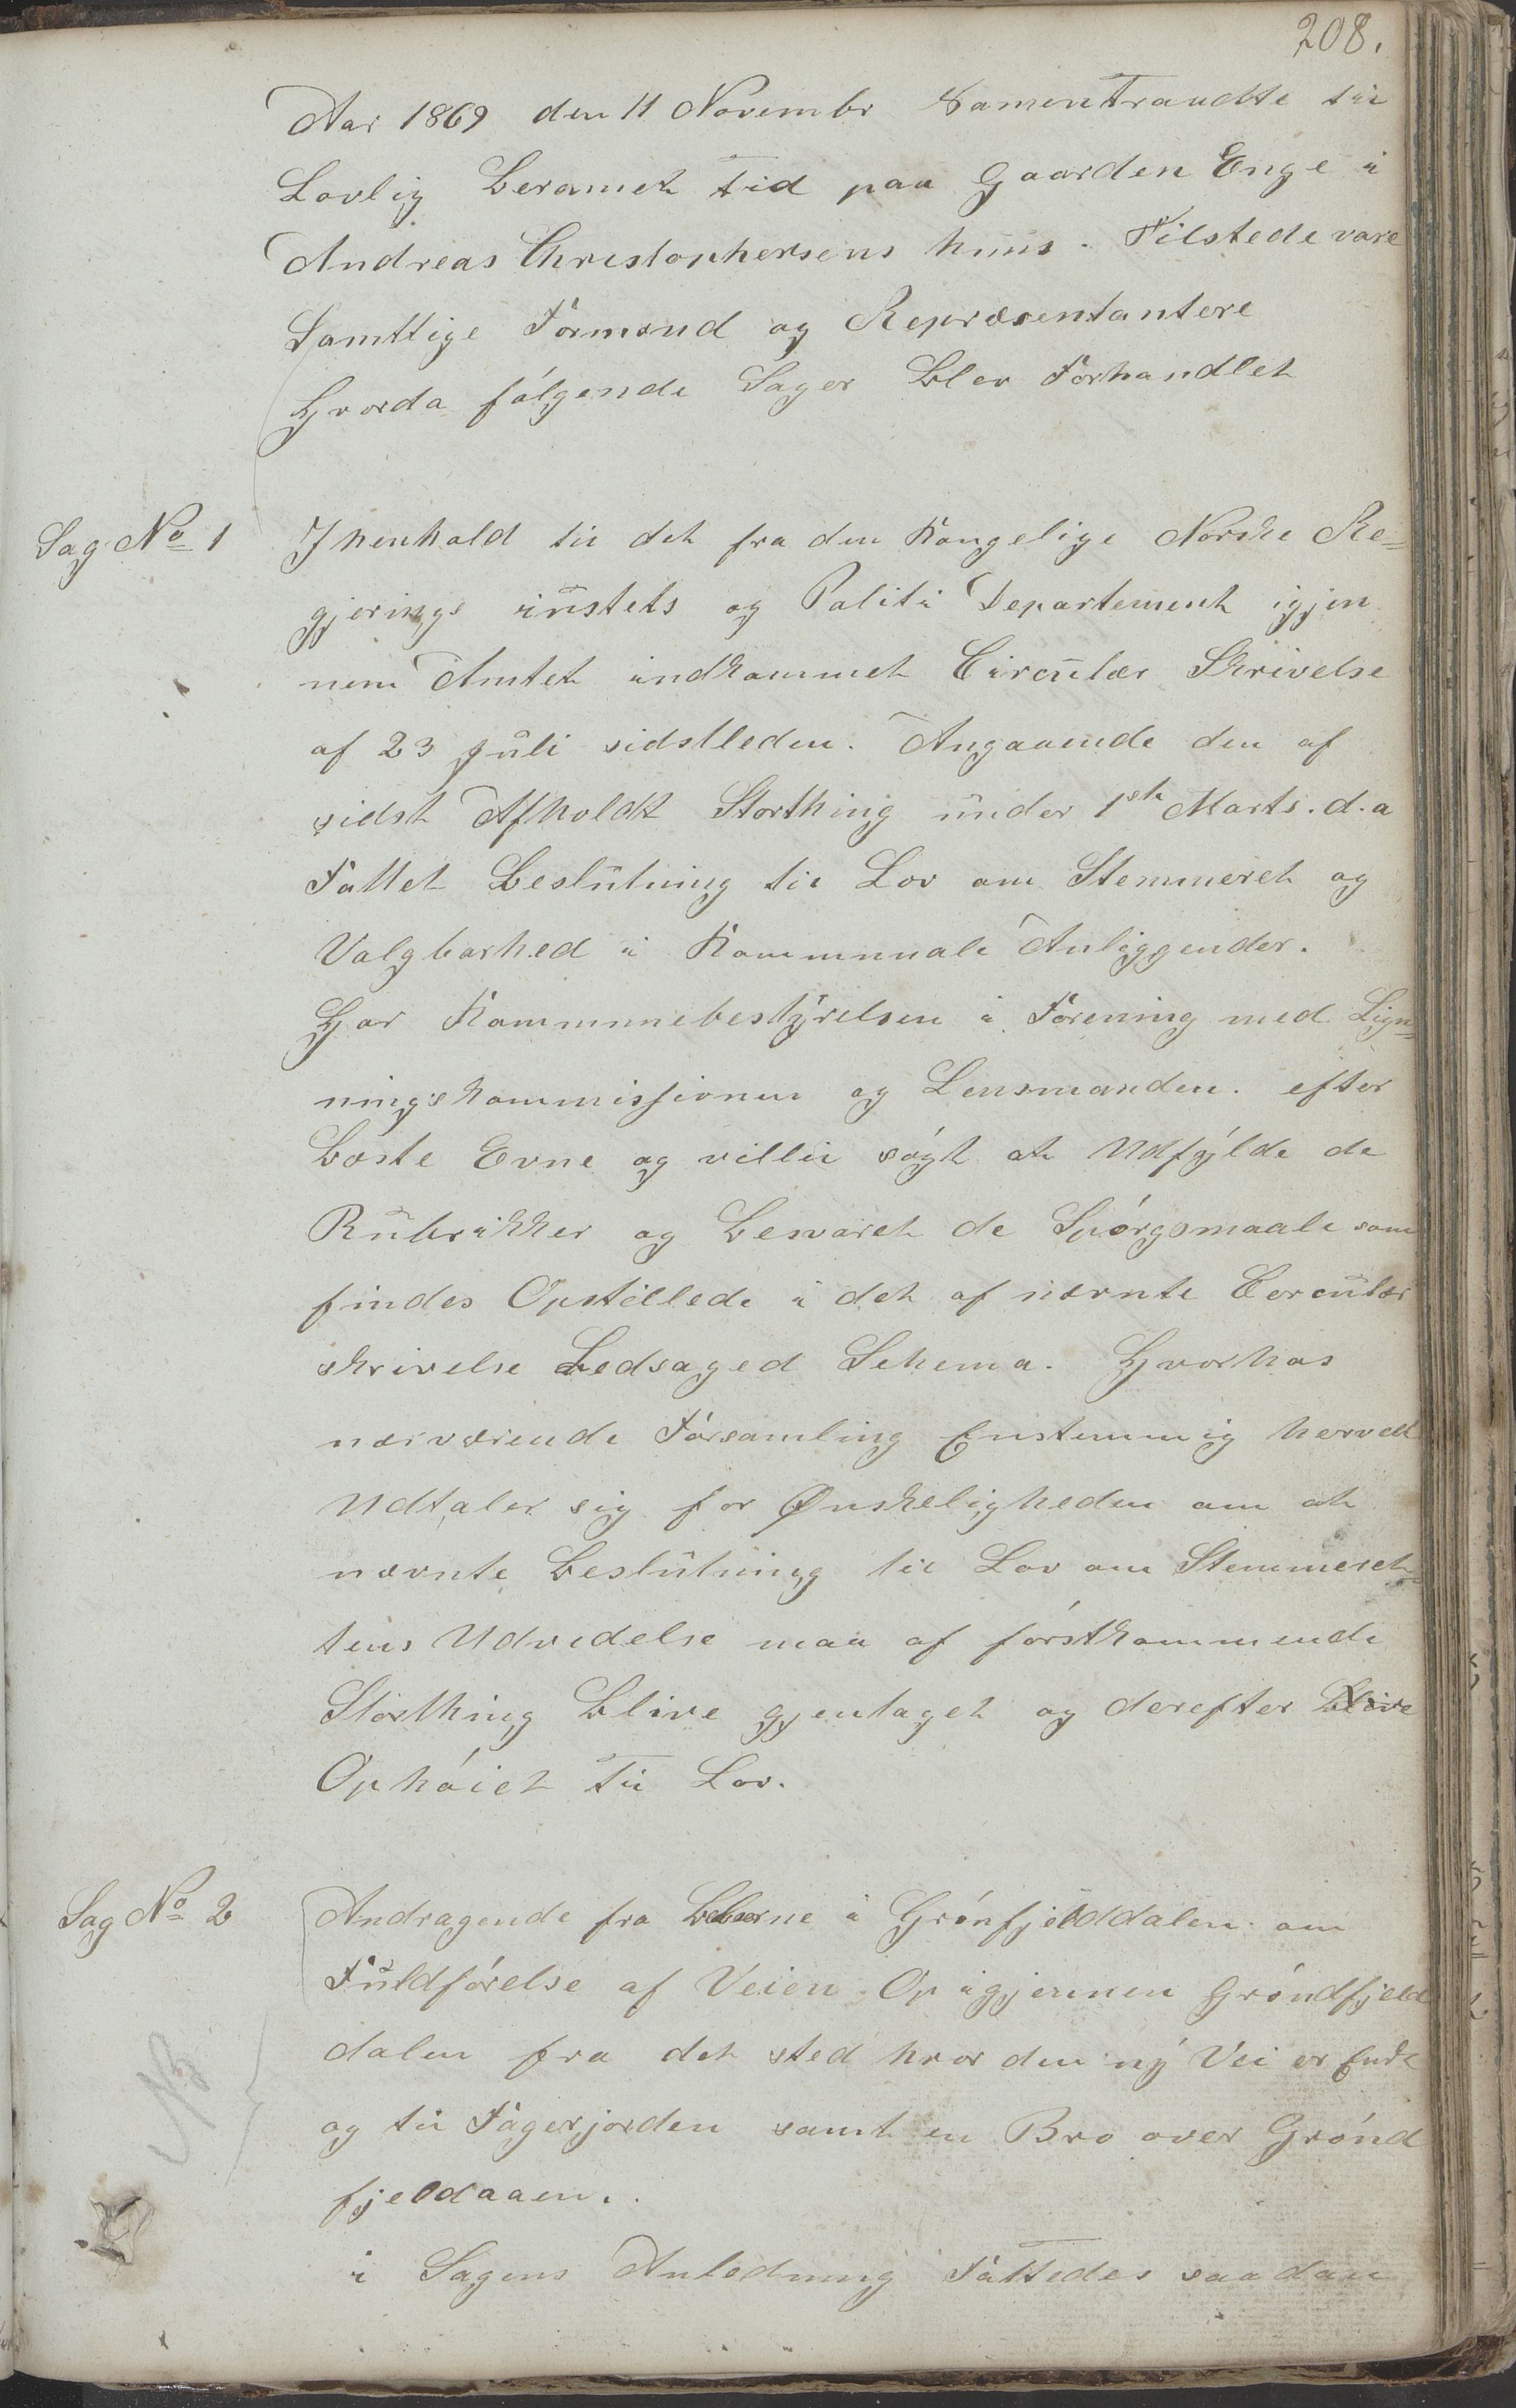 208.
Aar 1869 den 11 Novembr Samentraadte til
Lovlig Beramet Tid paa Gaarden Enge i
Andreas Christophersens huus. Tilstede vare
Samttlige Formænd og Repræsentantere
Hvorda følgende Sager Blev Forhandlet
Sag No 1
I henhold til det fra den Kongelige Norske Re=
gjerings iustets og Politi Departement igjen
nem Amtet indkommet Circulær Skrivelse
af 23 Juli sidstleden. Angaaende den af
sidst Afholdt Storthing under 1ste Marts. d. a
Fattet Beslutning til Lov om Stemmeret og
Valgbarhed i Kommunale Anliggender.
Har Kommunebestyrelsen i Forening med Lign=
ningskommissionen og Lensmanden. efter
Bæste Evne og villie søgt at Udfylde de
Rubrikker og Besvaret de Spørgsmaale som
findes Opstillede i det af nævnte Circulær
skrivelse Ledsaged Schema. Hvorhos
nærværende Forsamling Enstemmig herved
Udtaler sig for Ønskeligheden om at
nævnte Beslutning til Lov om Stemmeret=
tens Udvidelse maa af førstkommende
Storthing Blive gjentaget og derefter Blive
Ophøiet Til Lov.
Sag No 2
Andragende fra Beboerne i Grønfjelddalen om
Fuldførelse af Veien Op igjennem Grøndfjeld
dalen fra det sted hvor den ny Vei er Ende
og til Fagerjorden samt en Bro over Grønd
fjeldaaen.
NB
i Sagens Anledning Fattedes saadan